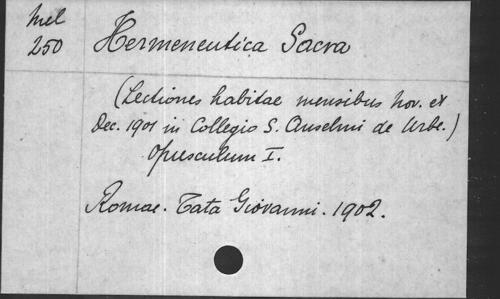 Mel
250
Hermeneutica Sacra
(Lectiones habitae mensibus Nov. et
Dec. 1901 in Collegio S. Anselmi de Urbe.)
Opusculum I.
Romae. Tata Giovanni. 1902.